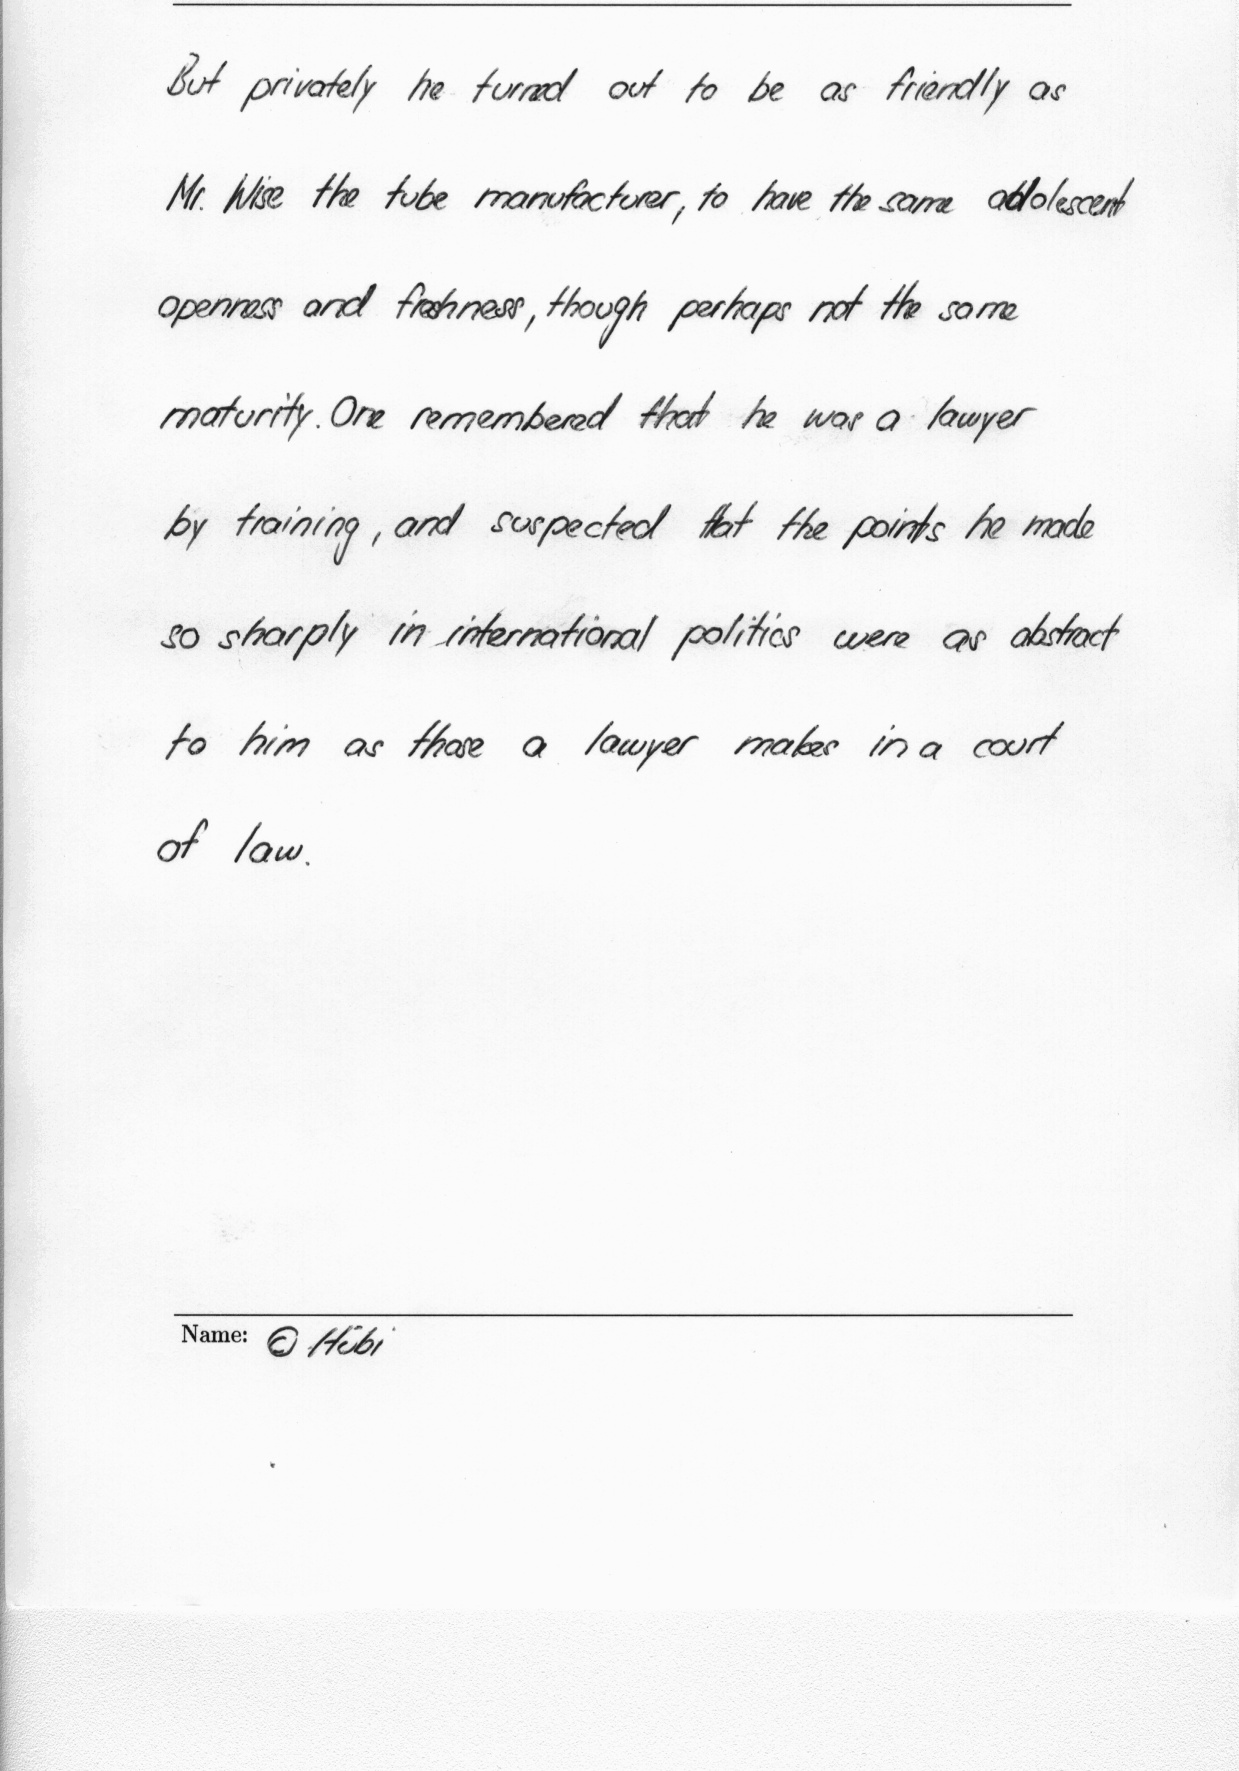 But privately he turned out to be as friendly as
Mr. Wise the tube manufacturer, to have the same adolescent
openness and freshness, though perhaps not the same
maturity. One remembered that he was a lawyer
by training, and suspected that the points he made
so sharply in international politics were as abstract
to him as those a lawyer makes in a court
of law.
Name: © Hübi